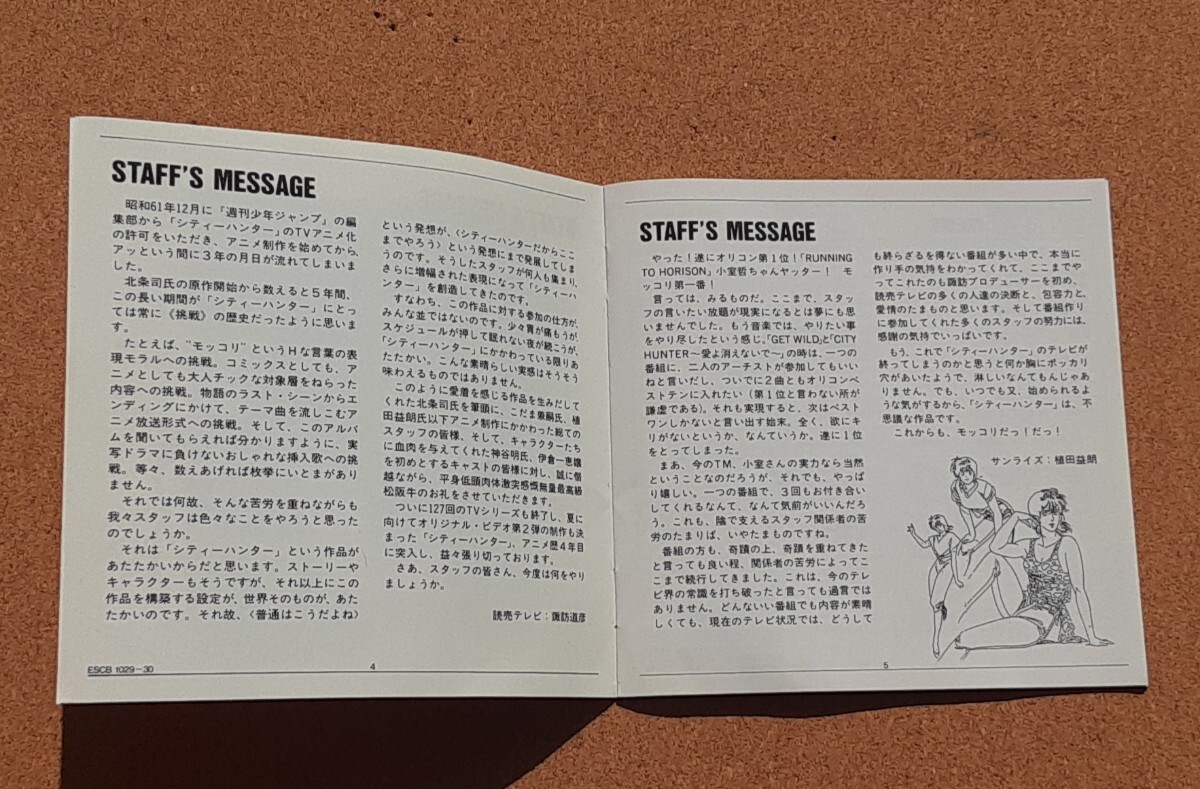 STAFF'S MESSAGE
昭和61年12月に『週刊少年ジャンプ』の編
集部から「シティーハンター」のTVアニメ化
の許可をいただき、アニメ制作を始めてから、
アッという間に3年の月日が流れてしまいま
した。
北条司氏の原作開始から数えると5年間、
この長い期間が「シティーハンター」にとっ
ては常に《挑戦》の歴史だったように思いま
す。
たとえば、"モッコリ"というHな言葉の表
現モラルへの挑戦。コミックスとしても、ア
ニメとしても大人チックな対象層をねらった
内容への挑戦。物語のラスト・シーンからエ
ンディングにかけて、テーマ曲を流しこむア
ニメ放送形式への挑戦。そして、このアルバ
ムを聞いてもらえれば分かりますように、実
写ドラマに負けないおしゃれな挿入歌への挑
戦。等々、数えあげれば枚挙にいとまがあり
ません。
それでは何故、そんな苦労を重ねながらも
我々スタッフは色々なことをやろうと思った
のでしょうか。
それは「シティーハンター」という作品が
あたたかいからだと思います。ストーリーや
キャラクターもそうですが、それ以上にこの
作品を構築する設定が、世界そのものが、あた
たかいのです。それ故、〈普通はこうだよね〉
という発想が、〈シティーハンターだからここ
までやろう〉という発想にまで発展してしま
うのです。そうしたスタッフが何人も集まり、
さらに増幅された表現になって「シティーハ
ンター」を創造してきたのです。
すなわち、この作品に対する参加の仕方が、
みんな並ではないのです。少々胃が痛もうが、
スケジュールが押して眠れない夜が続こうが、
「シティーハンター」にかかわっている限りあ
たたかい。こんな素晴らしい実感はそうそう
味わえるものではありません。
このように愛着を感じる作品を生みだして
くれた北条司氏を筆頭に、こだま兼嗣氏、植
田益朗氏以下アニメ制作にかかわった総ての
スタッフの皆様、そして、キャラクターたち
に血肉を与えてくれた神谷明氏、伊倉一恵嬢
を初めとするキャストの皆様に対し、誠に僭
越ながら、平身低頭肉体激突感慨無量最高級
松阪牛のお礼をさせていただきます。
ついに127回のTVシリーズも終了し、夏に
向けてオリジナル・ビデオ第2弾の制作も決
まった「シティーハンター」、アニメ歴4年目
に突入し、益々張り切っております。
さあ、スタッフの皆さん、今度は何をやり
ましょうか。
読売テレビ：諏訪道彦
ESCB 1029-30
4
STAFF'S MESSAGE
やった！遂にオリコン第1位！「RUNNING
TO HORISON」小室哲ちゃんヤッター！ モ
ッコリ第一番！
言っては、みるものだ。ここまで、スタッ
フの言いたい放題が現実になるとは夢にも思
いませんでした。もう音楽では、やりたい事
をやり尽したという感じ。「GET WILD」と「CITY
HUNTER～愛よ消えないで～」の時は、一つの
番組に、二人のアーチストが参加してもいい
ねと言いだし、ついでに2曲ともオリコンベ
ストテンに入れたい（第1位と言わない所が
謙虚である）。それも実現すると、次はベスト
ワンしかないと言い出す始末。全く、欲にキ
リがないというか、なんていうか。遂に1位
をとってしまった。
まあ、今のTM、小室さんの実力なら当然
ということなのだろうが、それでも、やっぱ
り嬉しい。一つの番組で、3回もお付き合い
してくれるなんて、なんて気前がいいんだろ
う。これも、陰で支えるスタッフ関係者の苦
労のたまりば、いやたまものですね。
番組の方も、奇蹟の上、奇蹟を重ねてきた
と言っても良い程、関係者の苦労によってこ
こまで続行してきました。これは、今のテレ
ビ界の常識を打ち破ったと言っても過言では
ありません。どんないい番組でも内容が素晴
しくても、現在のテレビ状況では、どうして
も終らざるを得ない番組が多い中で、本当に
作り手の気持をわかってくれて、ここまでや
ってこれたのも諏訪プロデューサーを初め、
読売テレビの多くの人達の決断と、包容力と、
愛情のたまものと思います。そして番組作り
に参加してくれた多くのスタッフの努力には、
感謝の気持でいっぱいです。
もう、これで「シティーハンター」のテレビが
終ってしまうのかと思うと何か胸にポッカリ
穴があいたようで、淋しいなんてもんじゃあ
りません。でも、いつでも又、始められるよ
うな気がするから、「シティーハンター」は、不
思議な作品です。
これからも、モッコリだっ！だっ！
サンライズ：植田益朗
5